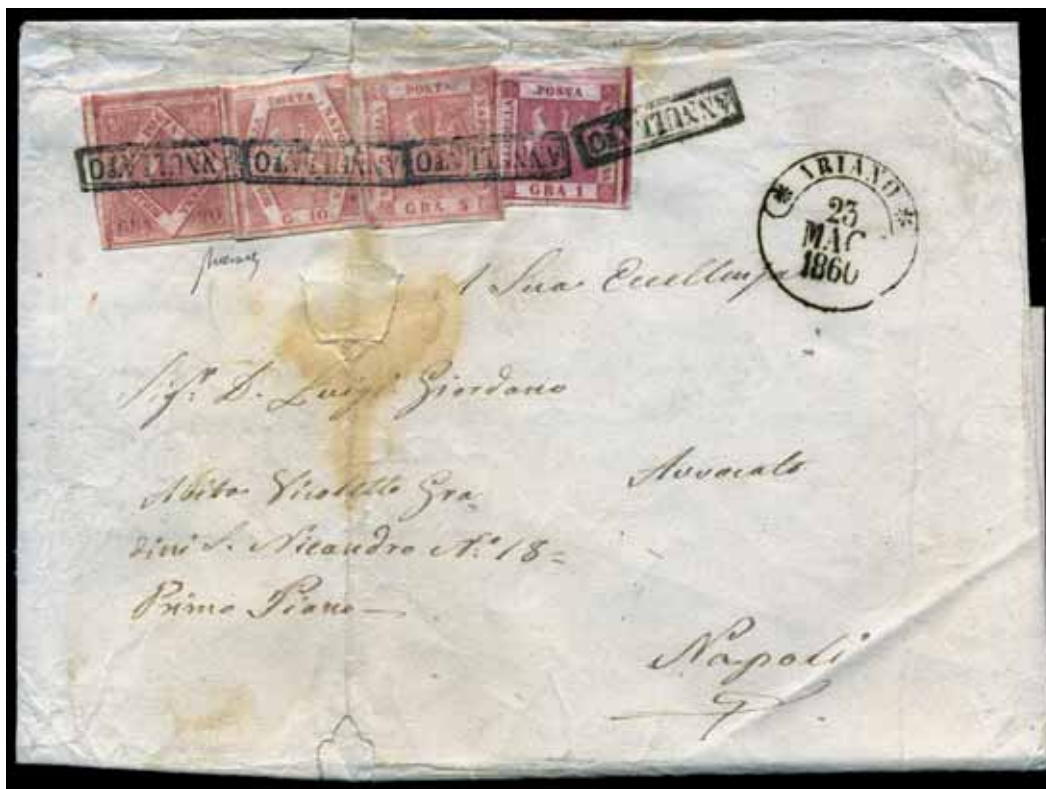 POSTA
POSTA
POSTA
ANNULLATO
ANNULLATO
ANNULLATO
ANNULLATO
GRA
G 10
GRA 5
GRA 1
* ARIANO *
23
MAG
1860
A Sua Eccellenza
Sigr. D. Luigi Giordano
Avvocato
Abita Vicoletto Gra
dini S. Nicandro N.º 18=
Primo Piano—
Napoli